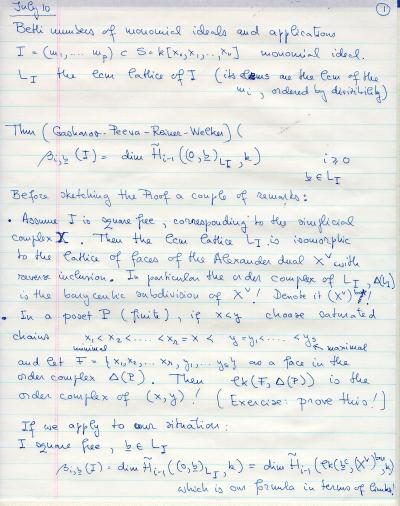 July 10
①
Betti numbers of monomial ideals and applications
I = (m₁, .... m_p) ⊂ S = k[x₀, x₁, ..., x_n] monomial ideal.
L_I the lcm lattice of I (its elems are the lcm of the
m_i, ordered by divisibility)
Thm (Gasharov-Peeva-Reiner-Welker) (
β_{i,b}(I) = dim H̃_{i-1}((0,b)_{L_I}, k) i ≥ 0
b ∈ L_I
Before sketching the Proof a couple of remarks:
• Assume I is square free, corresponding to the simplicial
complex X. Then the lcm lattice L_I is isomorphic
to the lattice of faces of the Alexander dual X^∨ with
reverse inclusion. In particular the order complex of L_I, Δ(L_I)
is the barycentric subdivision of X^∨! Denote it (X^∨)!
• In a poset P (finite), if x<y choose saturated
chains x₁ < x₂ < .... < x_r = x < y = y₁ < .... < y_s
minimal maximal
and let F = {x₁, x₂, ... x_r, y₁, ... y_s} as a face in the
order complex Δ(P). Then lk(F, Δ(P)) is the
order complex of (x, y)! [Exercise: prove this!]
If we apply to our situation:
I square free, b ∈ L_I
β_{i,b}(I) = dim H̃_{i-1}((0,b)_{L_I}, k) = dim H̃_{i-1}(lk(b^c, (X^∨)^{bar}, k)
which is our formula in terms of links!